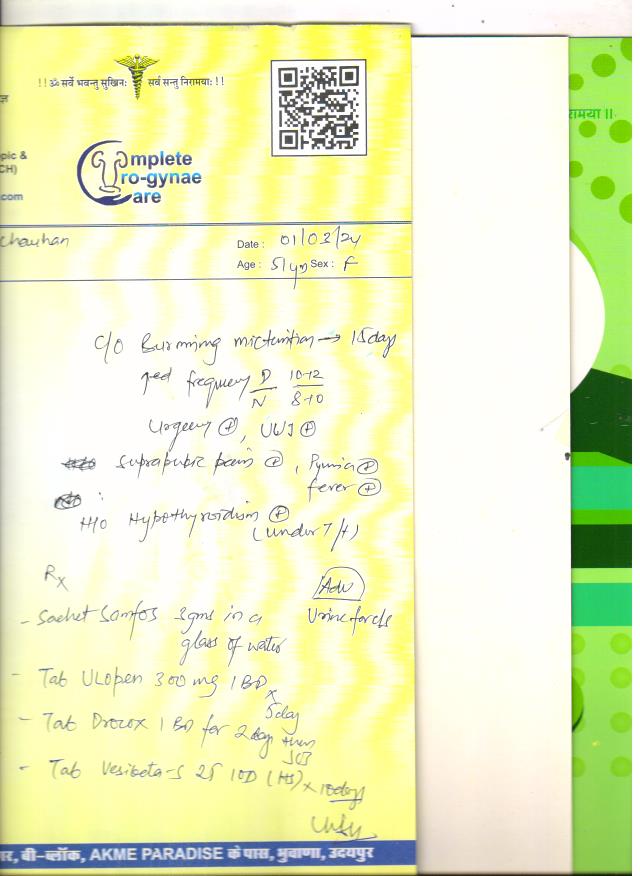 !! ॐ सर्वे भवन्तु सुखिनः सर्वे सन्तु निरामयाः !!
रामया ॥
pic &
CH)
.com
Complete
Uro-gynae
Care
Chauhan
Date : 01/03/24
Age : 51 yrs Sex : F
C/O Burning micturition → 15 day
↑ed frequency D/N 10-12/8-10
Urgency ⊕, UUI ⊕
suprapubic pain ⊕, Pyuria ⊕
fever ⊕
H/O Hypothyroidism ⊕
(under T/t)
Rx
Adv
- Sachet Somfos 3gms in a
glass of water
Urine for c/s
- Tab ULOpen 300 mg 1 BD
x 5 day
- Tab Drozox 1 BD for 2 days then
SOS
- Tab Vesibeta-S 25 1 OD (HS) x 10 days
गर, बी-ब्लॉक, AKME PARADISE के पास, भुवाणा, उदयपुर